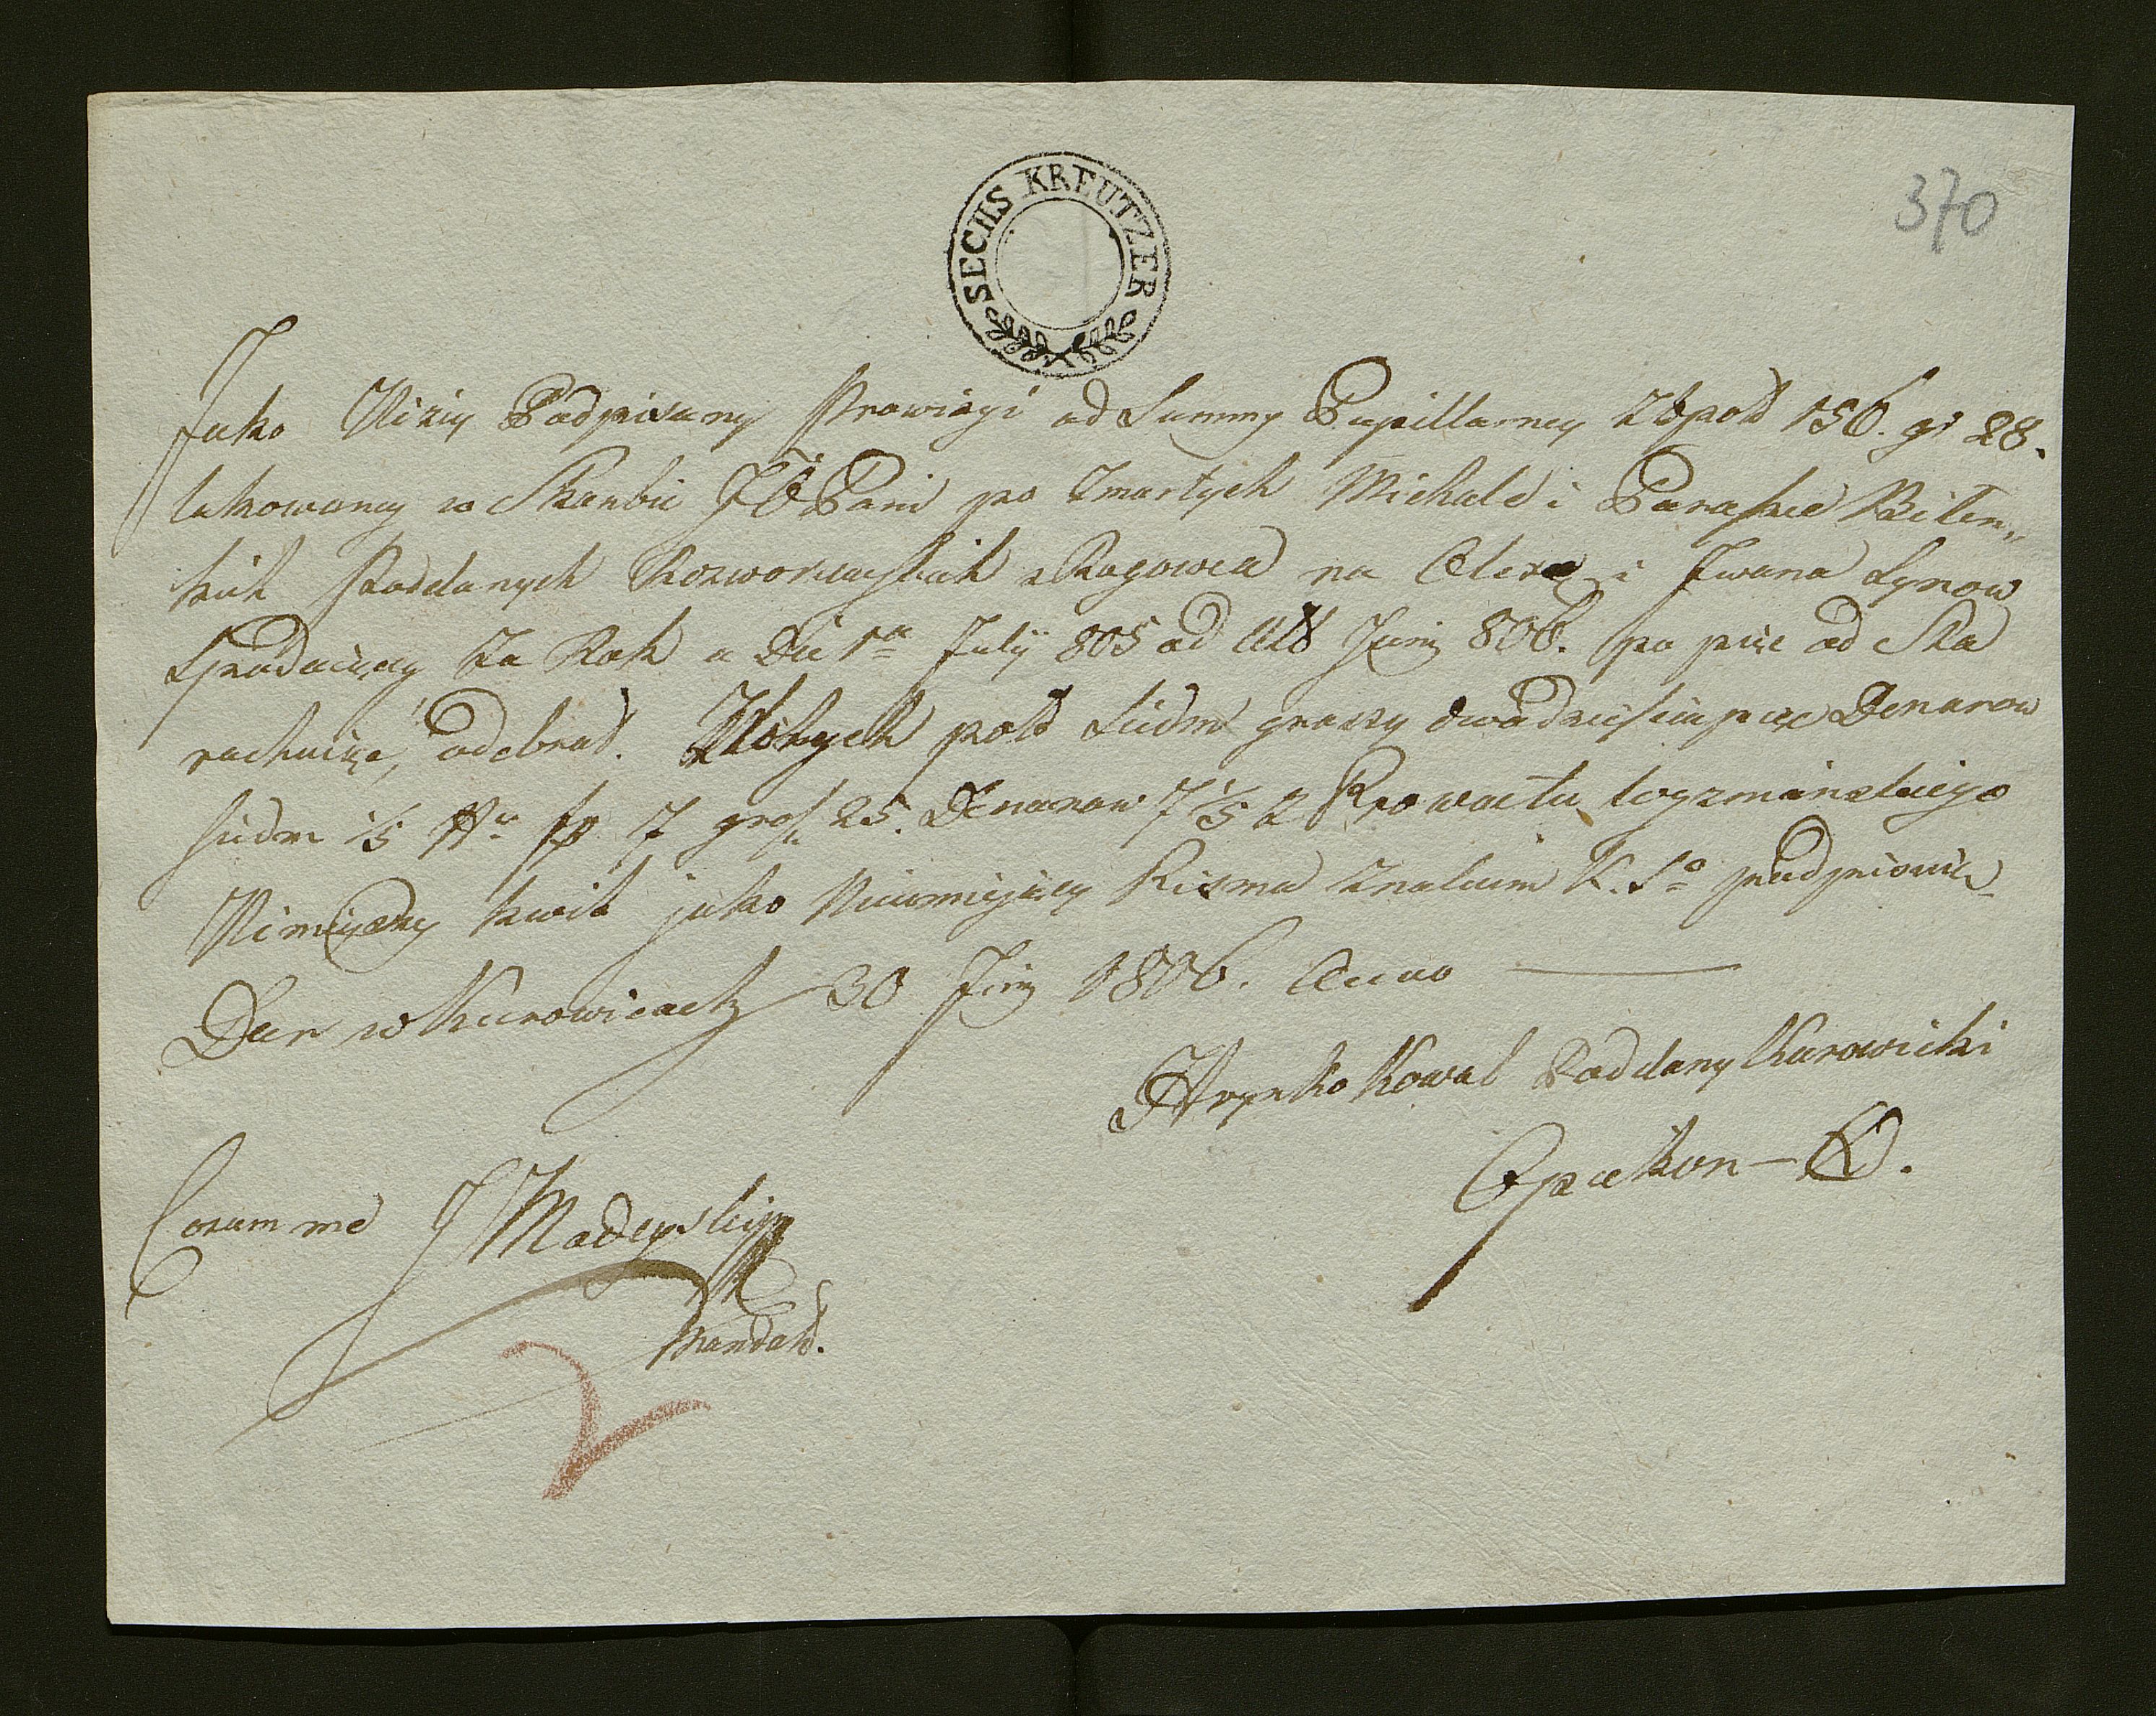 SECHS KREUTZER
370
Jako Niżey Podpisany Prowizyi od Summy Pupillarney Złpold 156. gr 28.
lokowaney w Skarbie JO Pani po Zmarłych Michale i Paraskie Bilen„
kich Poddanych z Rogowca na Olexę i Iwana Synow
Spadaiącey Za Rok a Die 1ma July 805 ad Ult Juny 806. po pięć od Sta
rachuiąc, odebrał. Złotych pold Siedm groszy dwadzieścia pięc Denarow
siedm 1/5 fp 7 gros 25. Denarow 7 1/5 z Prowentu
Ninieyszy kwit jako Nieumiejący Pisma Znakiem K. S. podpisuie
Dan w Kurowicach 30 Juny 1806. Anno
Hrynko Kowal Poddany Kurowicki
Opiekon
Coram me J Madeyski
Mandat.
2